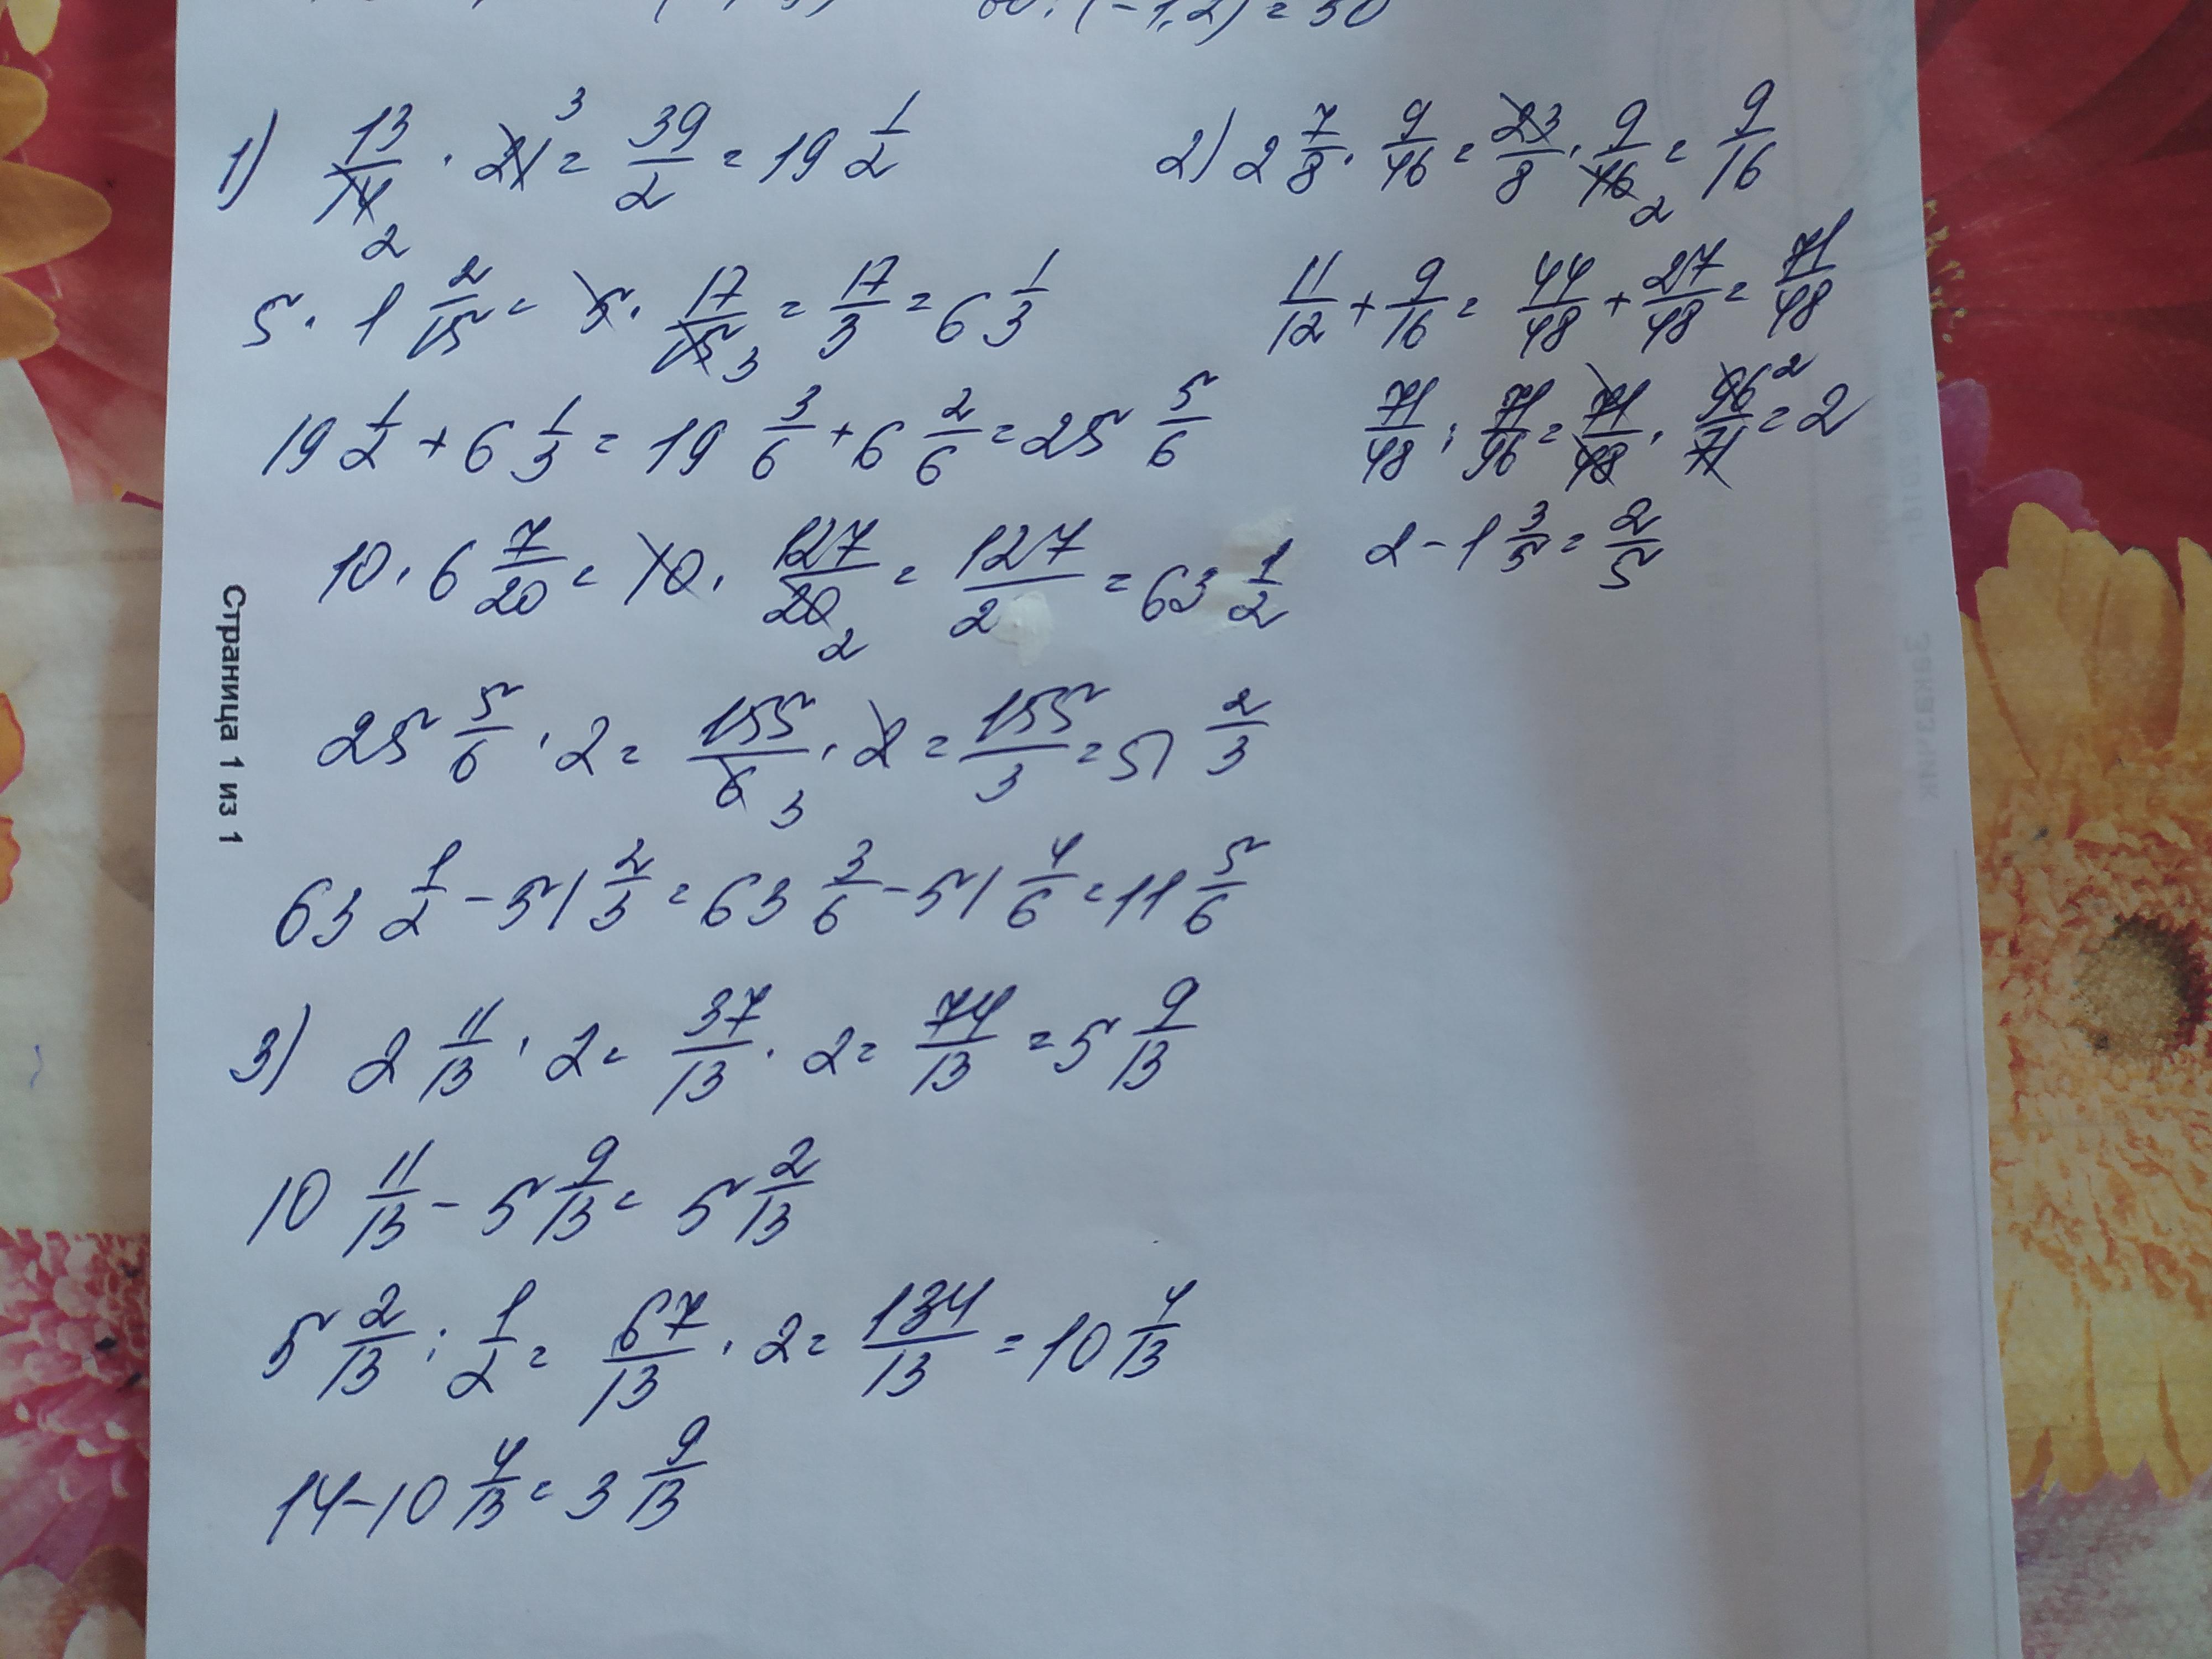 : (-1,2) = 50
1) 13/14 · 21 3 = 39/2 = 19 1/2
2
5 · 1 2/15 = 5 · 17/15 3 = 17/3 = 6 1/3
19 1/2 + 6 1/3 = 19 3/6 + 6 2/6 = 25 5/6
10 · 6 7/20 = 10 · 127/20 2 = 127/2 = 63 1/2
25 5/6 · 2 = 155/6 3 · 2 = 155/3 = 51 2/3
63 1/2 - 51 2/3 = 63 3/6 - 51 4/6 = 11 5/6
3) 2 11/13 · 2 = 37/13 · 2 = 74/13 = 5 9/13
10 11/13 - 5 9/13 = 5 2/13
5 2/13 : 1/2 = 67/13 · 2 = 134/13 = 10 4/13
14 - 10 4/13 = 3 9/13
2) 2 7/8 · 9/46 = 23/8 · 9/46 2 = 9/16
11/12 + 9/16 = 44/48 + 27/48 = 71/48
71/48 : 71/96 = 71/48 · 96 2/71 = 2
2 - 1 3/5 = 2/5
Страница 1 из 1
Заказчик